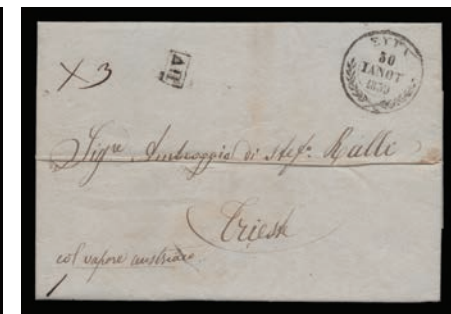 ΣΥΡΑ
30
ΙΑΝΟΥ
1839
X 3
ΔΠ
Sigre Ambroggio di Stef.º Ralli
Trieste
col vapore austriaco